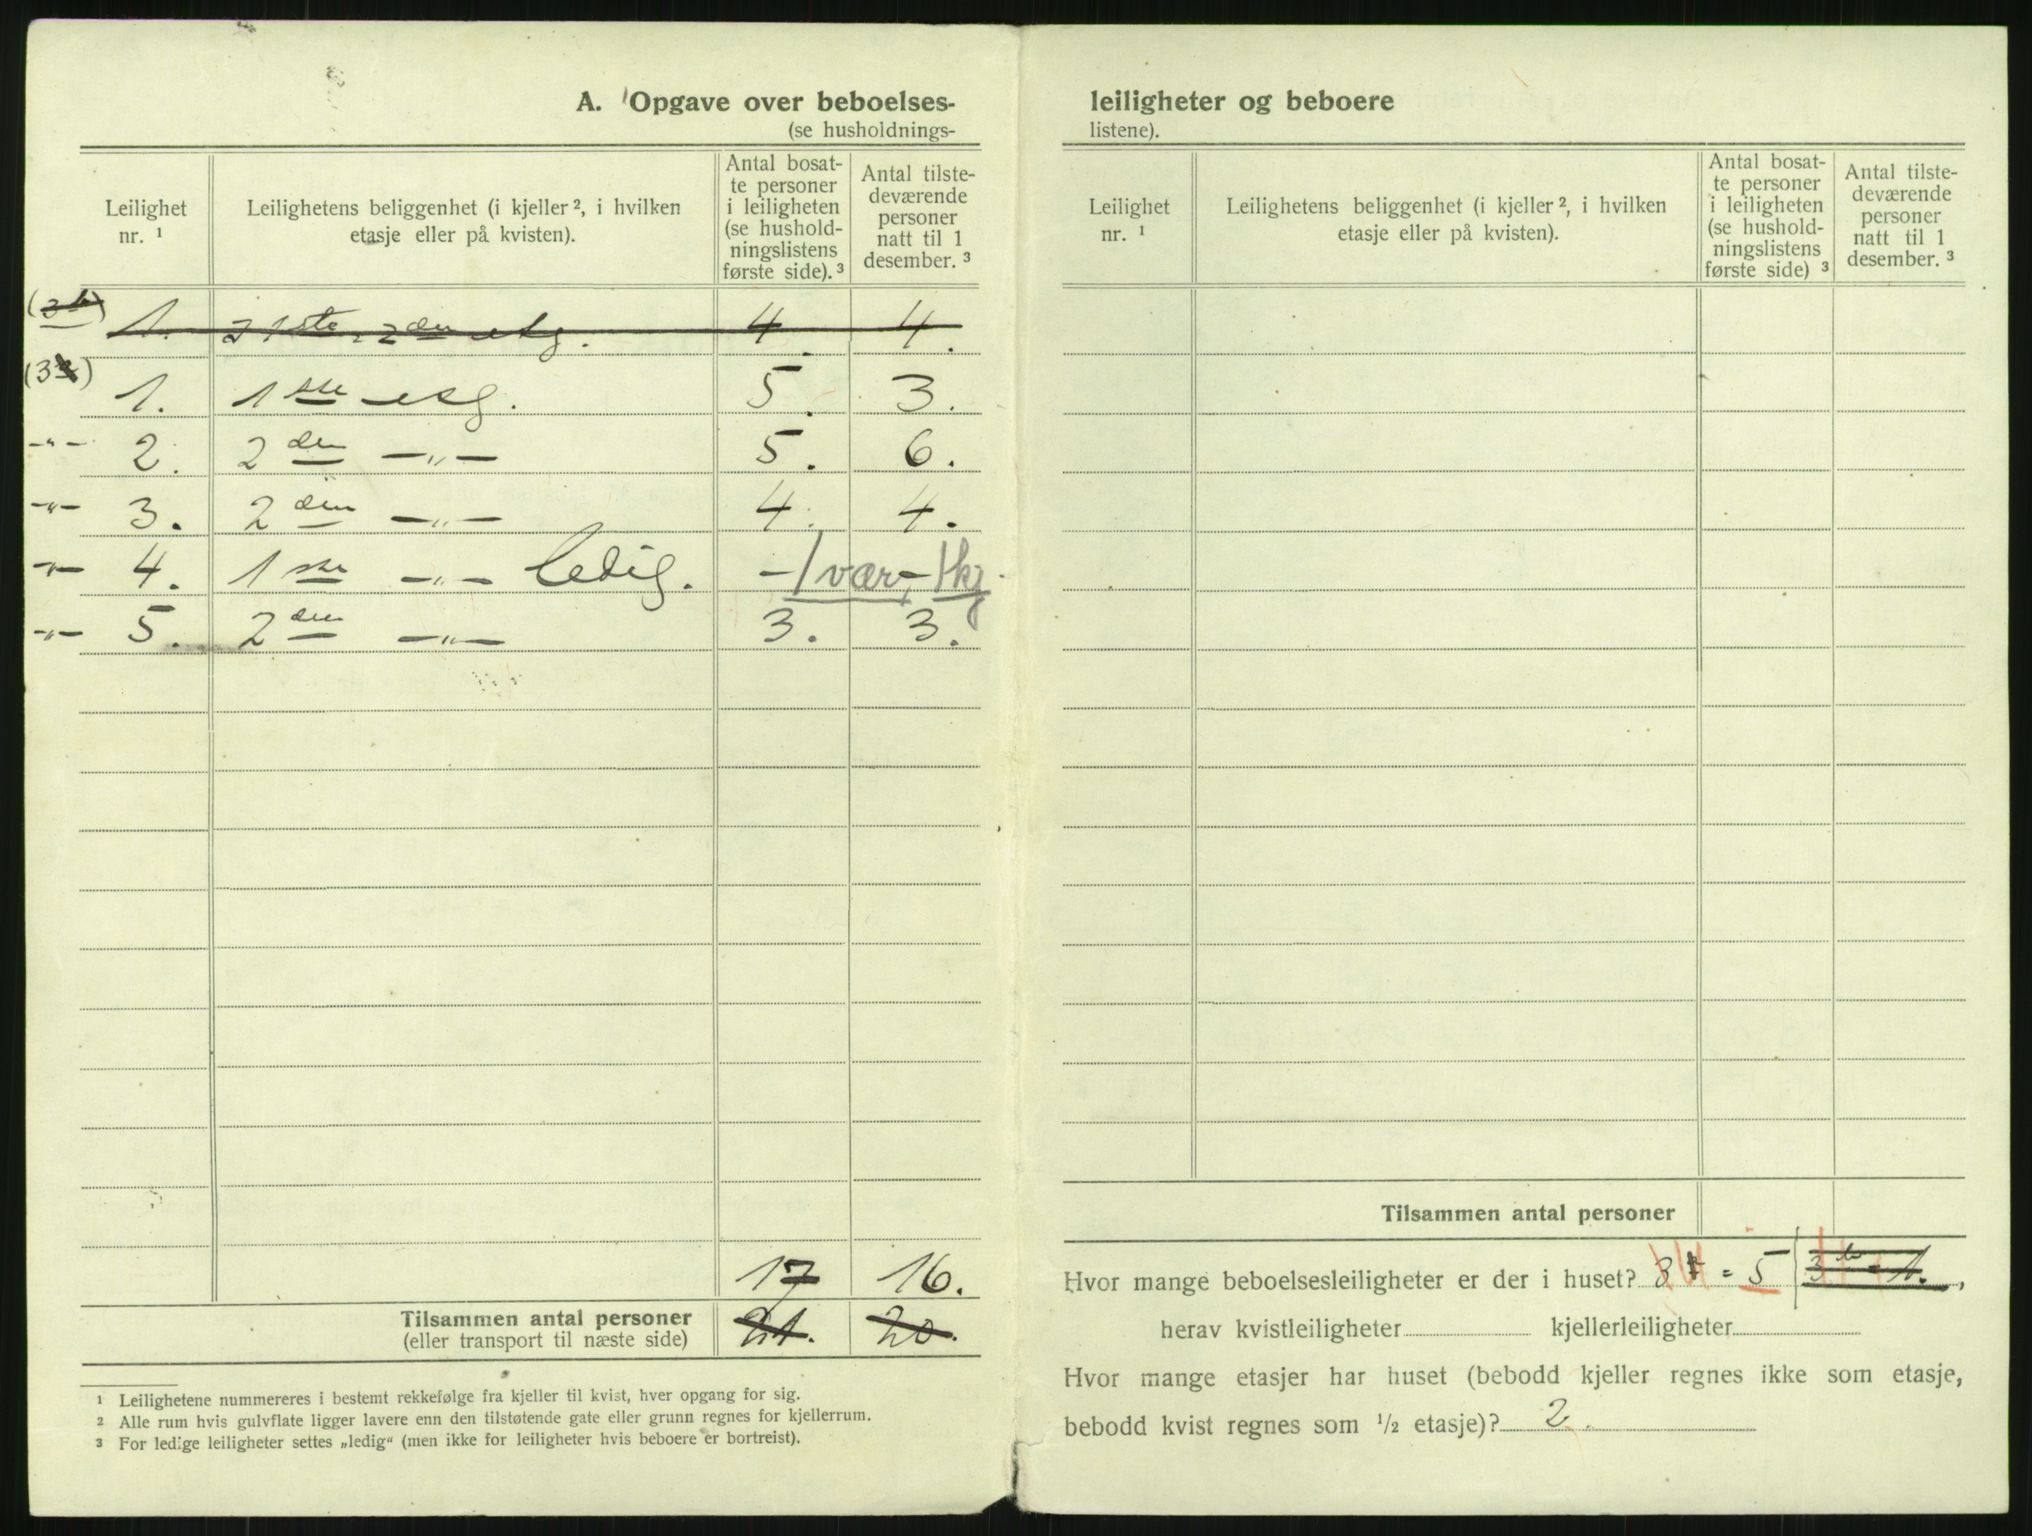 A. Opgave over beboelses-
(se husholdnings-
Leilighet nr. ¹
Leilighetens beliggenhet (i kjeller ², i hvilken etasje eller på kvisten).
Antal bosat-
te personer
i leiligheten
(se hushold-
ningslistens
første side). ³
Antal tilste-
deværende
personer
natt til 1
desember. ³
1. 1ste 2den etg. 4. 4.
1. 1ste etg. 5. 3.
-"- 2. 2den -"- 5. 6.
-"- 3. 2den -"- 4. 4.
-"- 4. 1ste -"- ledig. - 1 vær, - 1 kj.
-"- 5. 2den -"- 3. 3.
17 16.
Tilsammen antal personer 21. 20.
(eller transport til næste side)
¹ Leilighetene nummereres i bestemt rekkefølge fra kjeller til kvist, hver opgang for sig.
² Alle rum hvis gulvflate ligger lavere enn den tilstøtende gate eller grunn regnes for kjellerrum.
³ For ledige leiligheter settes „ledig“ (men ikke for leiligheter hvis beboere er bortreist).
leiligheter og beboere
listene).
Leilighet nr. ¹
Leilighetens beliggenhet (i kjeller ², i hvilken etasje eller på kvisten).
Antal bosat-
te personer
i leiligheten
(se hushold-
ningslistens
første side) ³
Antal tilste-
deværende
personer
natt til 1
desember. ³
Tilsammen antal personer
Hvor mange beboelsesleiligheter er der i huset? = 5 3b = 1.,
herav kvistleiligheter kjellerleiligheter
Hvor mange etasjer har huset (bebodd kjeller regnes ikke som etasje,
bebodd kvist regnes som ½ etasje)? 2.